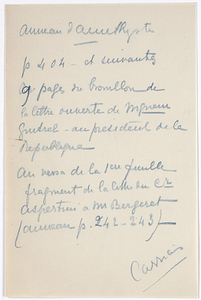 anneau d'améthyste
p 404 - et suivantes
9 pages du brouillon de
la lettre ouverte de Mgneur
Guitrel - au président de la
République
Au verso de la 1ere feuille
fragment de la lettre du Cr
Aspertini à Mr Bergeret
(anneau p. 242-243)